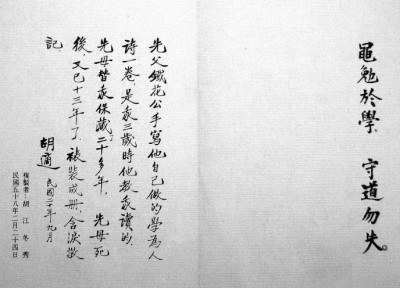 黽勉於學、守道勿失。
先父鐵花公手寫他自己做的學為人
詩一卷，是我三歲時他教我讀的，
先母替我保藏了二十多年，先母死
後，又已十三年了，裱裝成冊，含淚敬
記。
胡適 民國二十年九月
複製者：胡江冬秀
民國五十八年二月二十四日